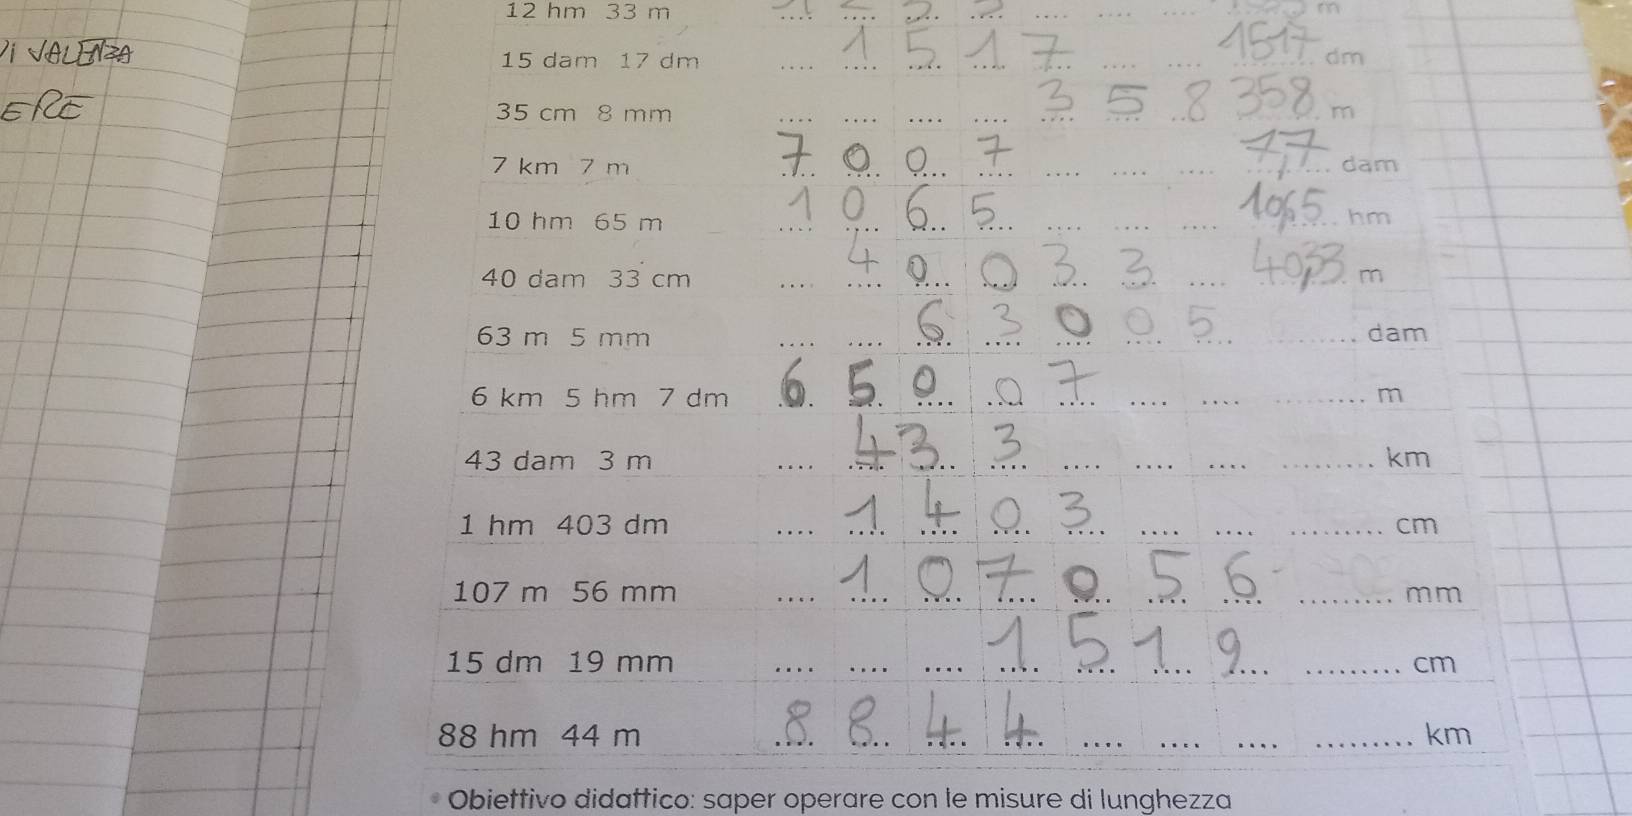 12 hm 33 m .... .... .... .... .... .... .... m
DI VALENZA
15 dam 17 dm .... 1 5 1 7 .... .... 1517 dm
ERE
35 cm 8 mm .... .... .... .... 3 5 8 358 m
7 km 7 m 7 0 0 7 .... .... .... 7,7 dam
10 hm 65 m 1 0 6 5 .... .... .... 10,65 hm
40 dam 33 cm .... 4 0 0 3 3 .... 40,33 m
63 m 5 mm .... .... 6 3 0 0 5 .......... dam
6 km 5 hm 7 dm 6 5 0 0 7 .... .... .......... m
43 dam 3 m .... 4 3 3 .... .... .... .......... km
1 hm 403 dm .... 1 4 0 3 .... .... .......... cm
107 m 56 mm .... 1 0 7 0 5 6 .......... mm
15 dm 19 mm .... .... .... 1 5 1 9 .......... cm
88 hm 44 m 8 8 4 4 .... .... .... .......... km
Obiettivo didattico: saper operare con le misure di lunghezza